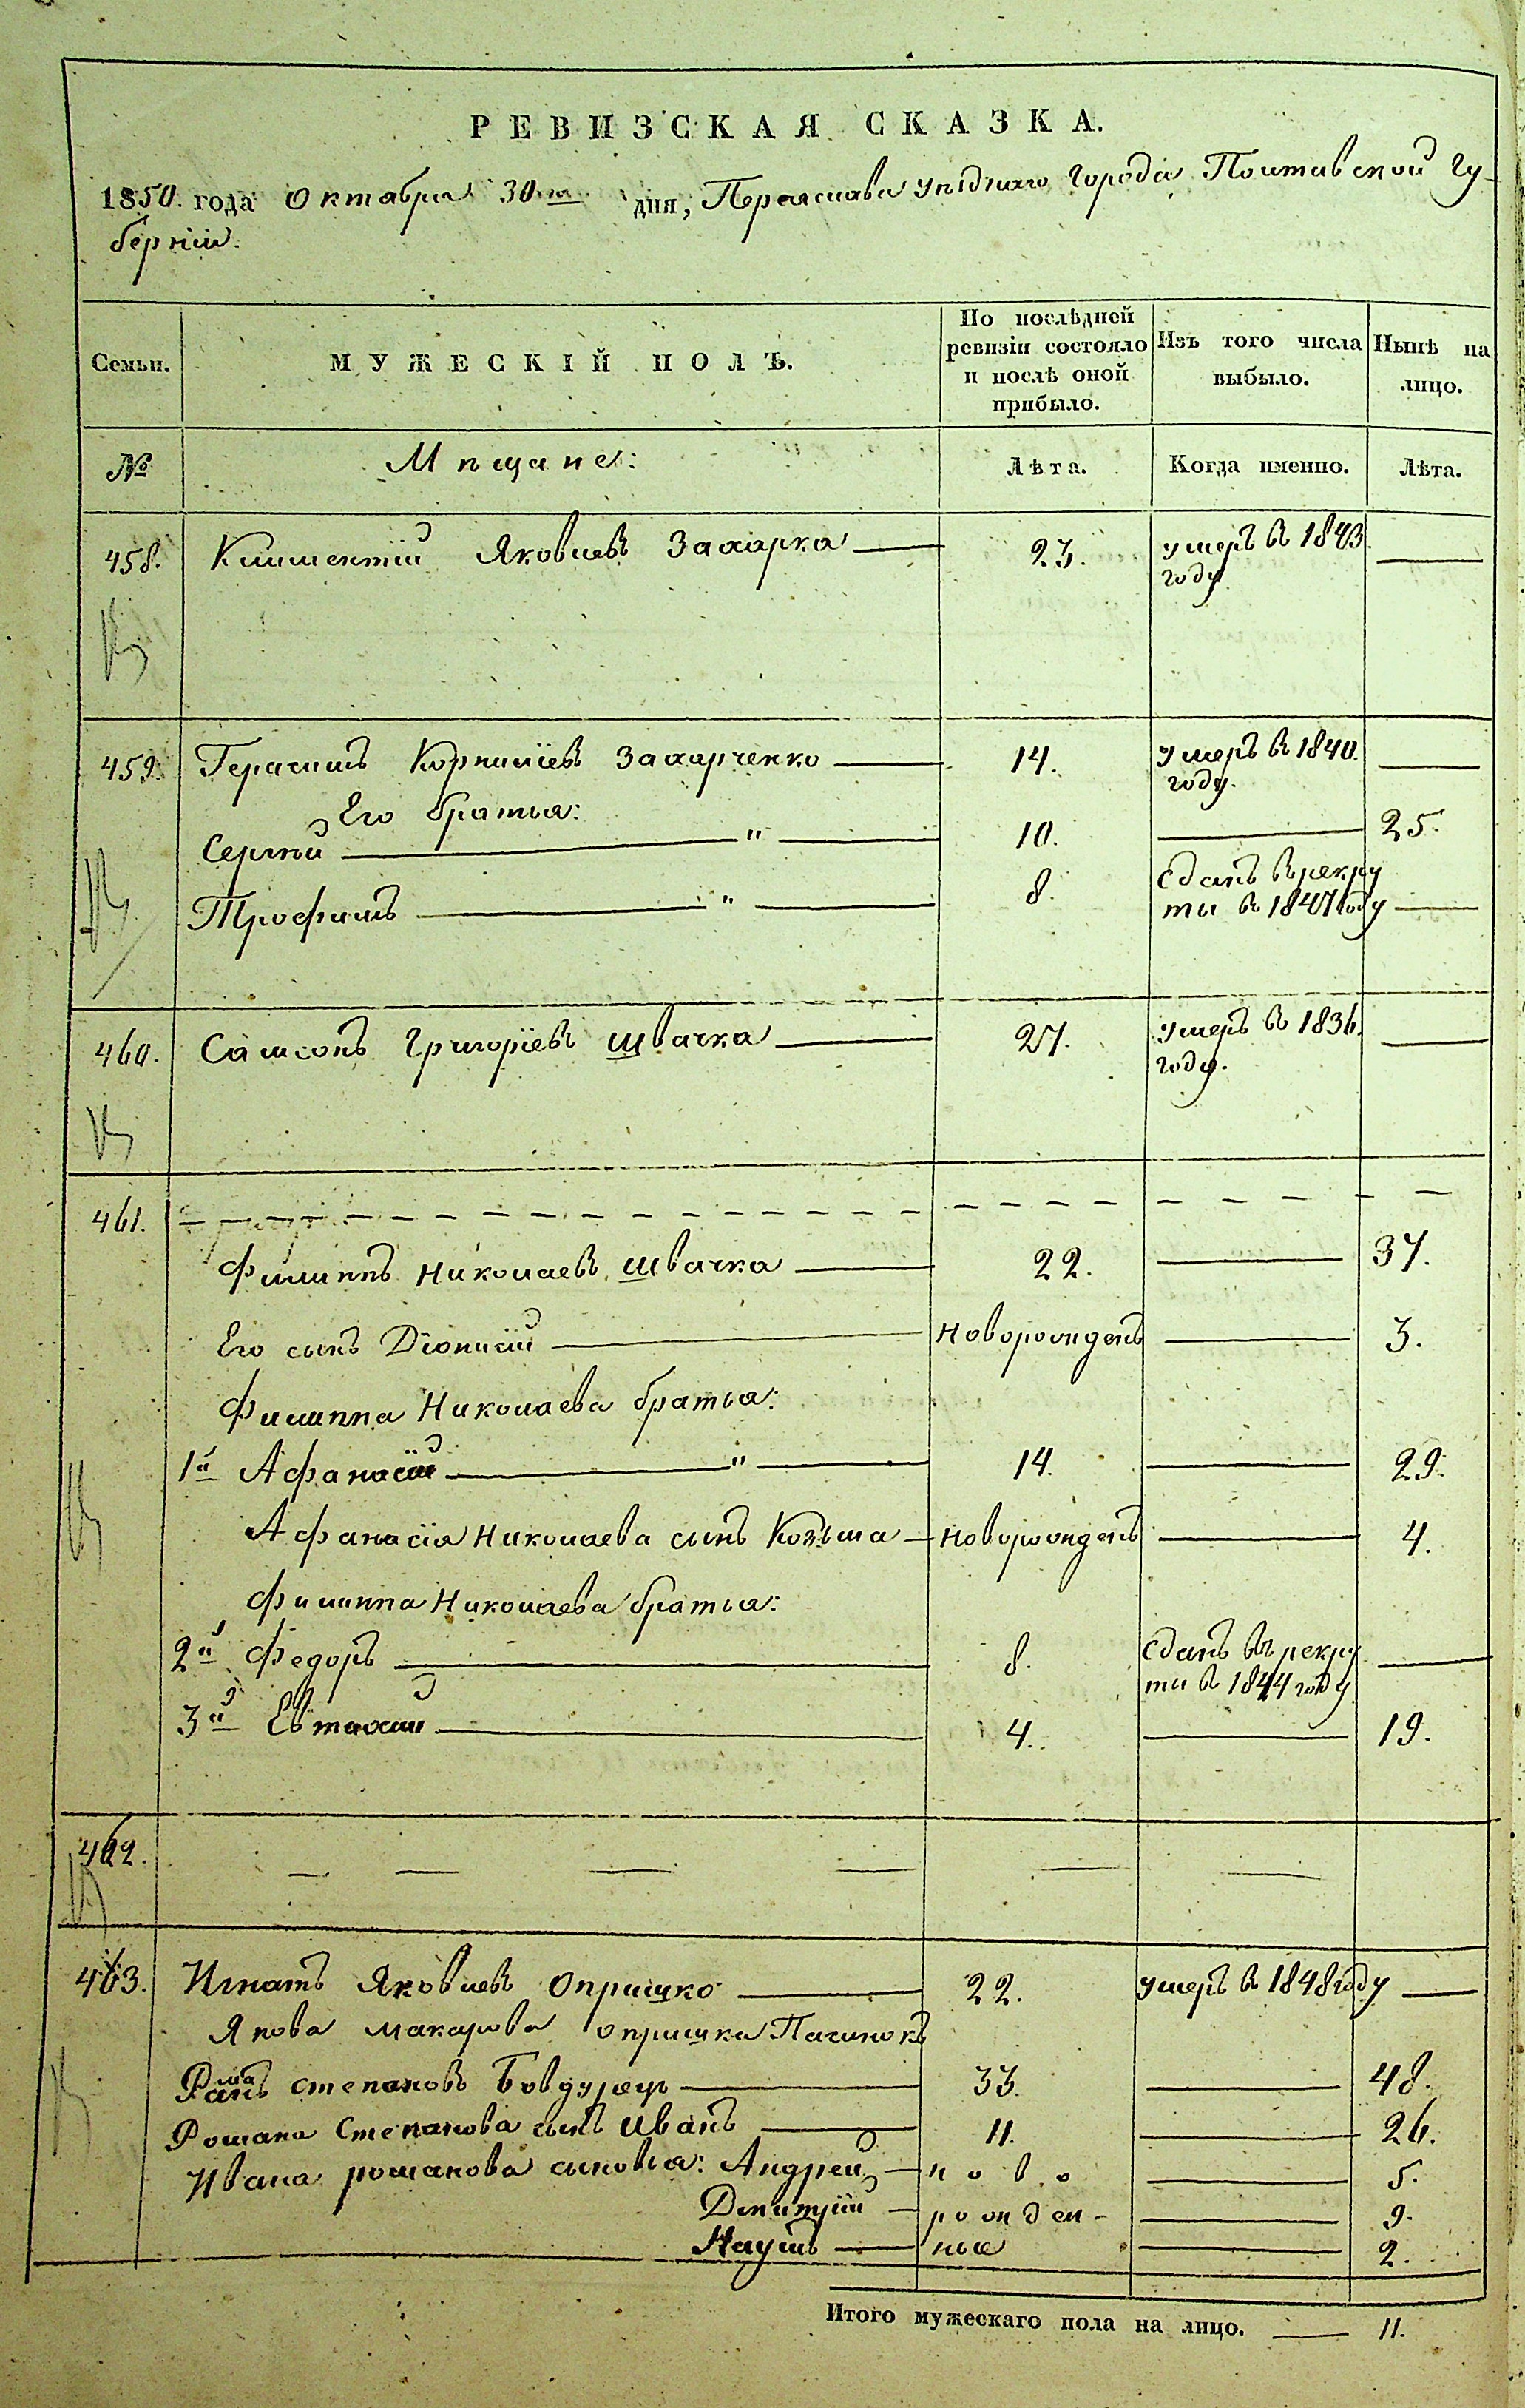 РЕВИЗСКАЯ СКАЗКА.
1850. года Октября 30го дня, Переяслава уѣзднаго города Полтавской Гу-
берніи.
Семьи. МУЖЕСКІЙ ПОЛЪ. По послѣдней ревизіи состояло и послѣ оной прибыло. Изъ того числа выбыло. Нынѣ на лицо.
№ Мѣщане: Лѣта. Когда именно. Лѣта.
458. Климентій Яковлевъ Захарка — 23. умеръ въ 1843 году —
459. Герасимъ Корнилïевъ Захарченко — 14. Умеръ въ 1840. году. —
Его братья:
Сергѣй — " — 10. — 25.
Трофимъ — " — 8. Сданъ въ рекруты въ 1847 году —
460. Самсонъ Григоріевъ Швачка — 27. умеръ въ 1836. году. —
461. — — — — — — — — — —
Филиппъ Николаевъ Швачка — 22. — 37.
Его сынъ Діонисій — Новорожденъ — 3.
Филиппа Николаева братья:
1й Афанасій — " — 14. — 29.
Афанасія Николаева сынъ Козьма — Новорожденъ — 4.
Филиппа Николаева братья:
2й Федоръ — 8. Сданъ въ рекруты въ 1844 году —
3й Евтахій — 4. — 19.
462. — — — — — —
463. Игнатъ Яковлевъ Опришко — 22. умеръ въ 1848 году —
Якова Макарова Опришка Пасынокъ
Романъ Степановъ Бовдурецъ — 33. — 48.
Романа Степанова сынъ Иванъ — 11. — 26.
Ивана Романова сыновья: Андрей — ново — 5.
Дмитрій — рожден- — 9.
Наумъ — ные — 2.
Итого мужескаго пола на лицо. — 11.